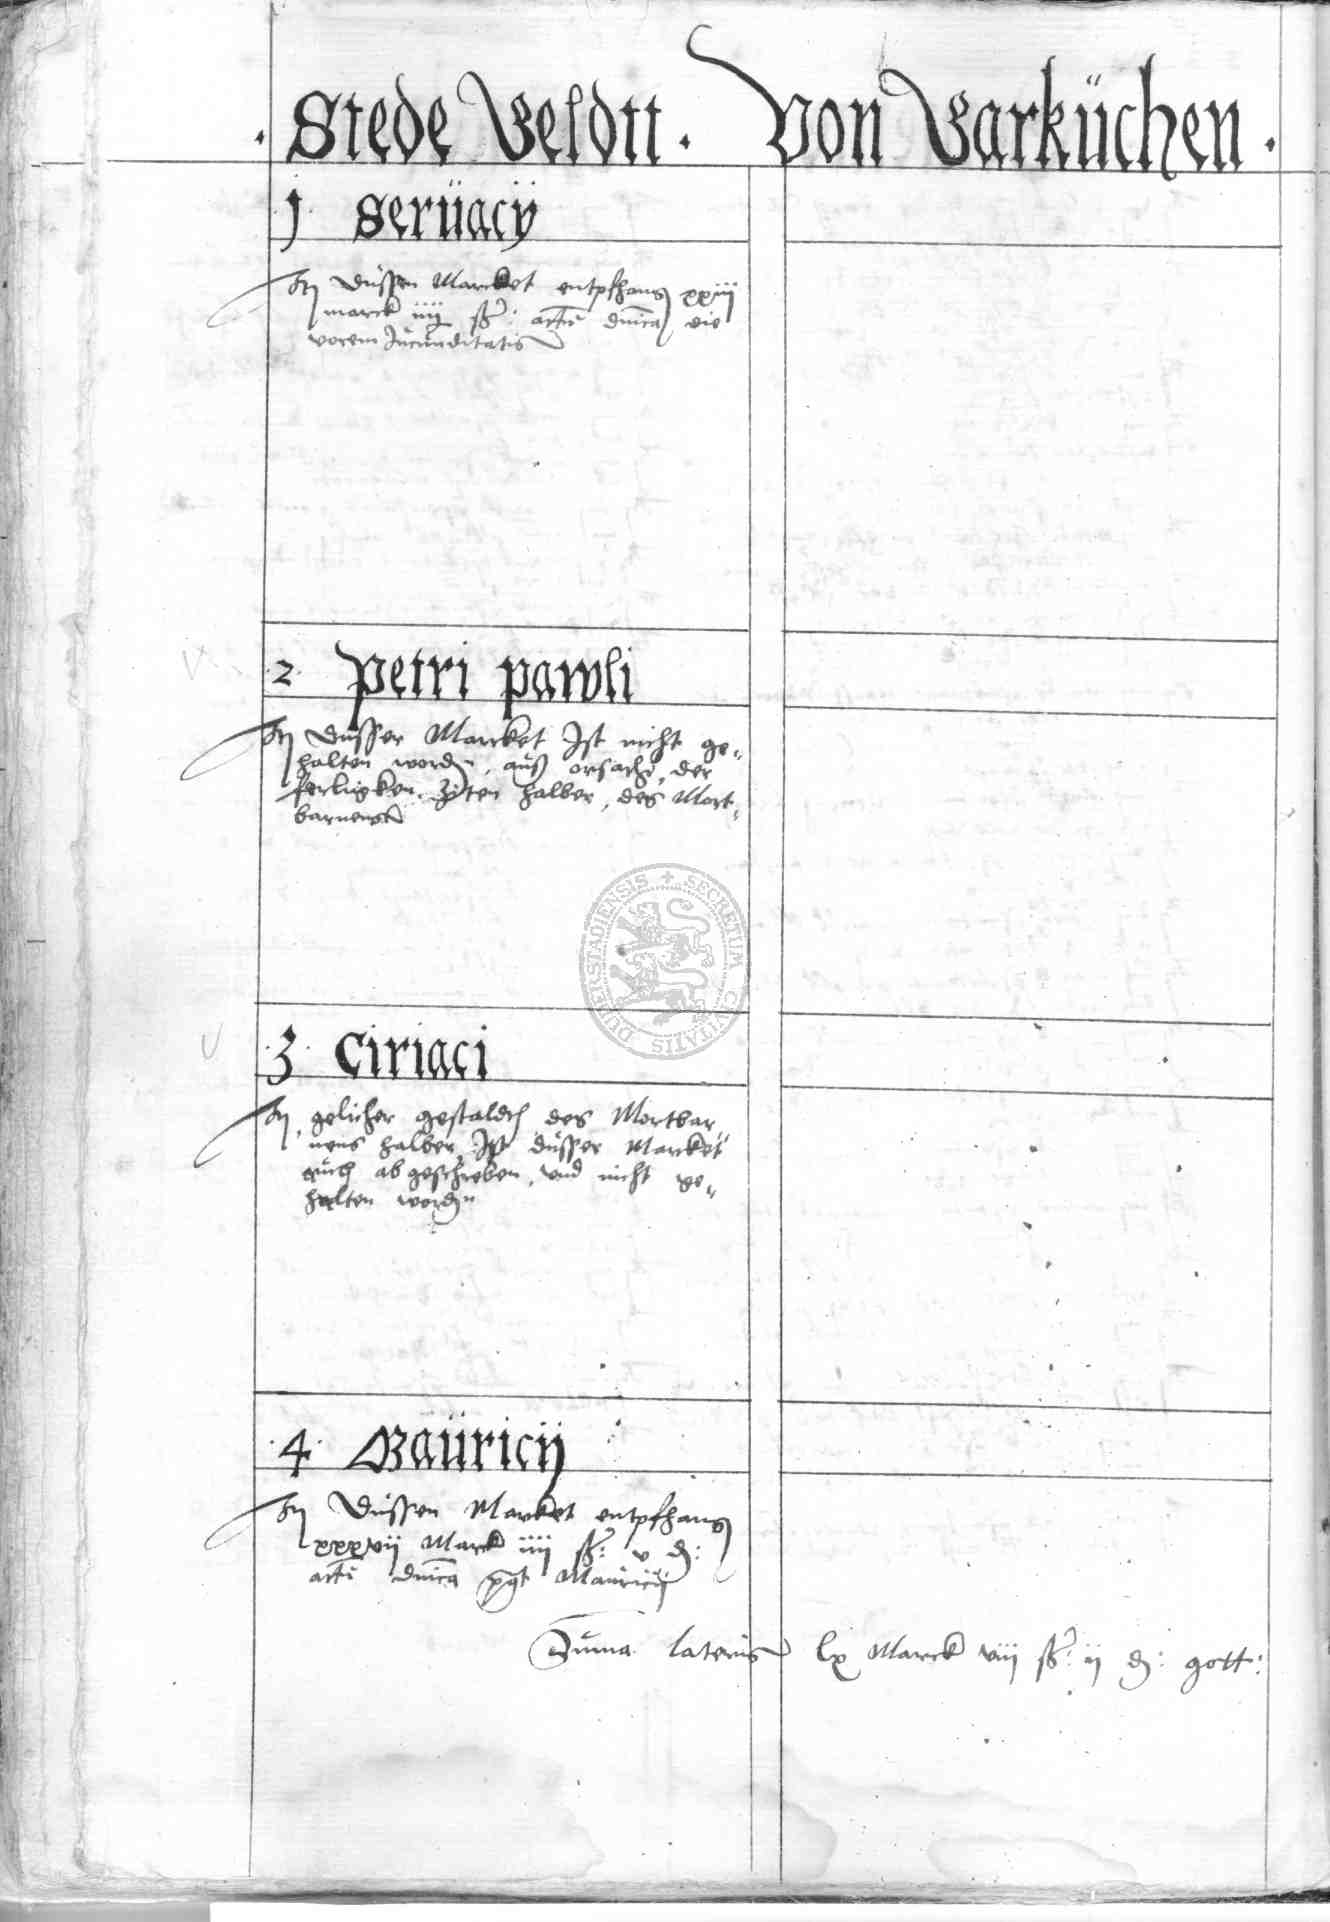 . Stede Geldtt . Von Garküchen .
.1. Serüacÿ
In düssen Marcket entpfhang xxiij
marck iiij ß: actu dnica die
vorem Jücunditatis
.2. Petri pawli
In düsser Marcket Ist nicht ge-
halten worden, auß orsache, der
ferligken Zÿten halber, des Mort-
barnens
.3. Ciriaci
In gelicher gestaldt des Mortbar
nens halber Ist düsser Marcket
auch abgeschreben, vnd nicht ge-
halten worden
.4. Maüricÿ
In düssen Marcket entpfhang
xxxvij Marck iiij ß: v d:
actu dnica post Mauricÿ
Suma lateris lx Marck viij ß: ij d: gott:
SECRETUM CIVITATIS DUDERSTADIENSIS